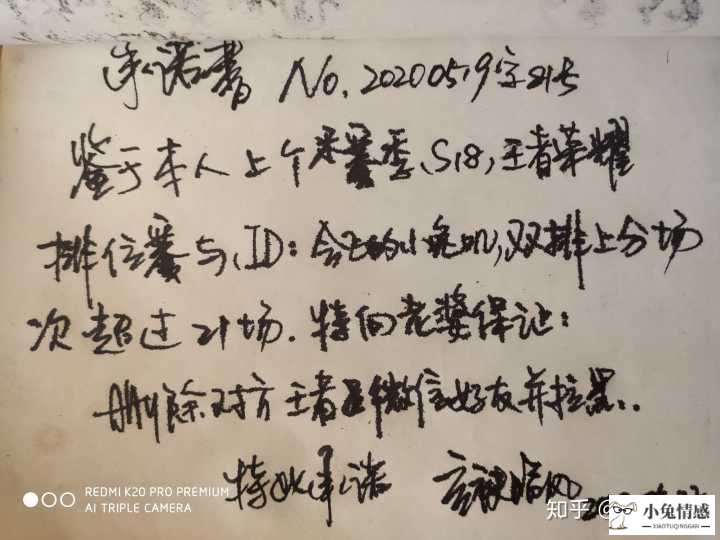 承诺书 No.20200519字21号
鉴于本人上个赛季(S18)王者荣耀
排位赛与(ID:会飞的小兔叽)双排上分场
次超过21场.特向老婆保证:
删除对方王者及微信好友并拉黑.
特此承诺
REDMI K20 PRO PREMIUM
AI TRIPLE CAMERA
知乎
小兔情感
XIAOTUQINGGAN